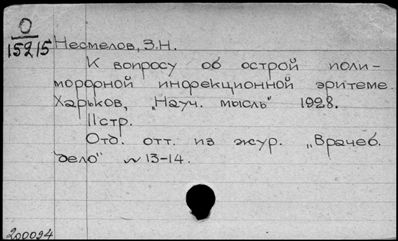 О
15215
Несмелов, З.Н.
К вопросу об острой поли-
морфной инфекционной эритеме.
Харьков, "Науч. мысль" 1928.
11 стр.
Отд. отт. из жур. "Врачеб.
дело" № 13-14.
200094